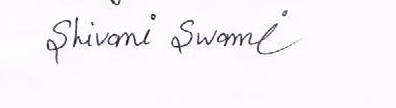 Shivani Swami